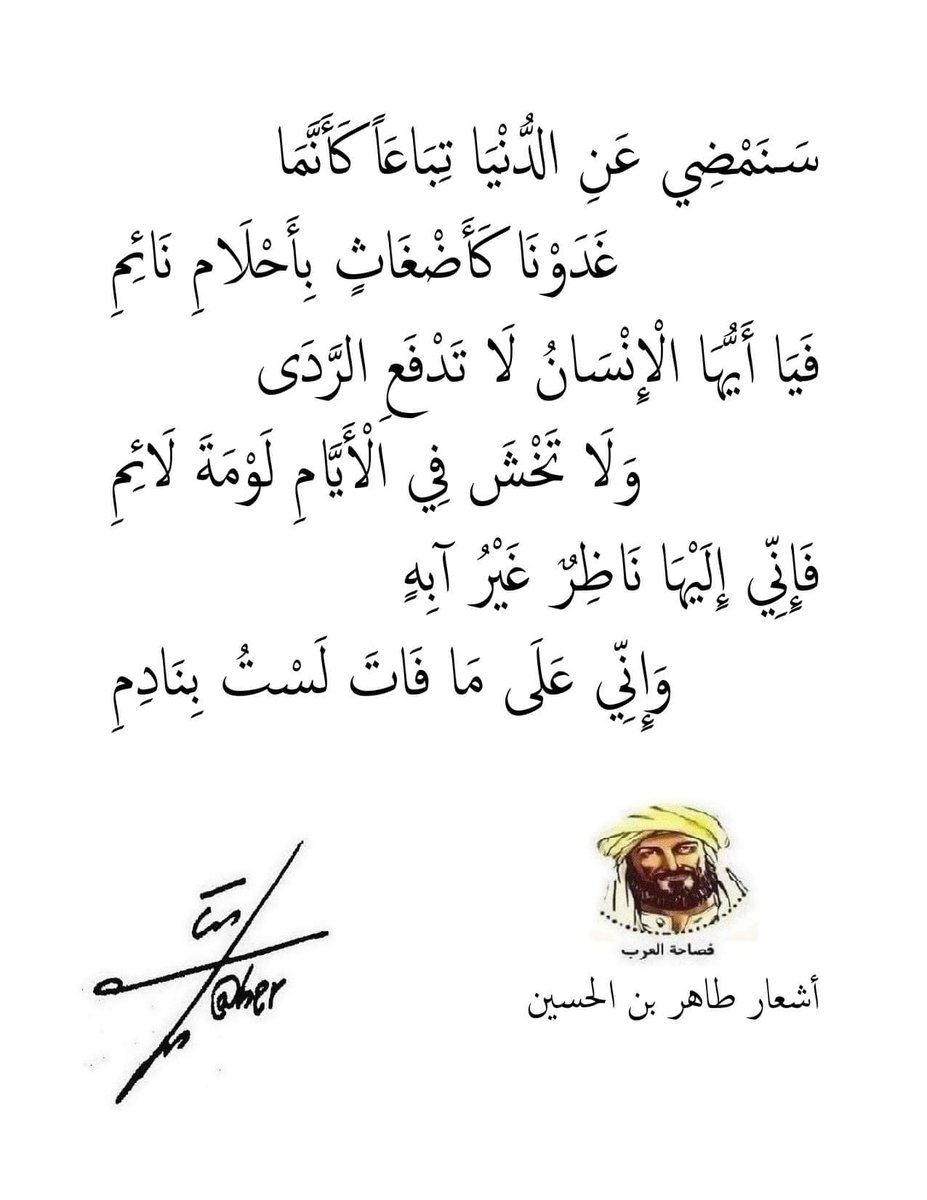 سَنَمْضِي عَنِ الدُّنْيَا تِبَاعَاً كَأَنَّمَا
غَدَوْنَا كَأَضْغَاثٍ بِأَحْلَامِ نَائِمِ
فَيَا أَيُّهَا الْإِنْسَانُ لَا تَدْفَعِ الرَّدَى
وَلَا تَخْشَ فِي الْأَيَّامِ لَوْمَةَ لَائِمِ
فَإِنِّي إِلَيْهَا نَاظِرٌ غَيْرُ آبِهٍ
وَإِنِّي عَلَى مَا فَاتَ لَسْتُ بِنَادِمِ
فصاحة العرب
أشعار طاهر بن الحسين
@her